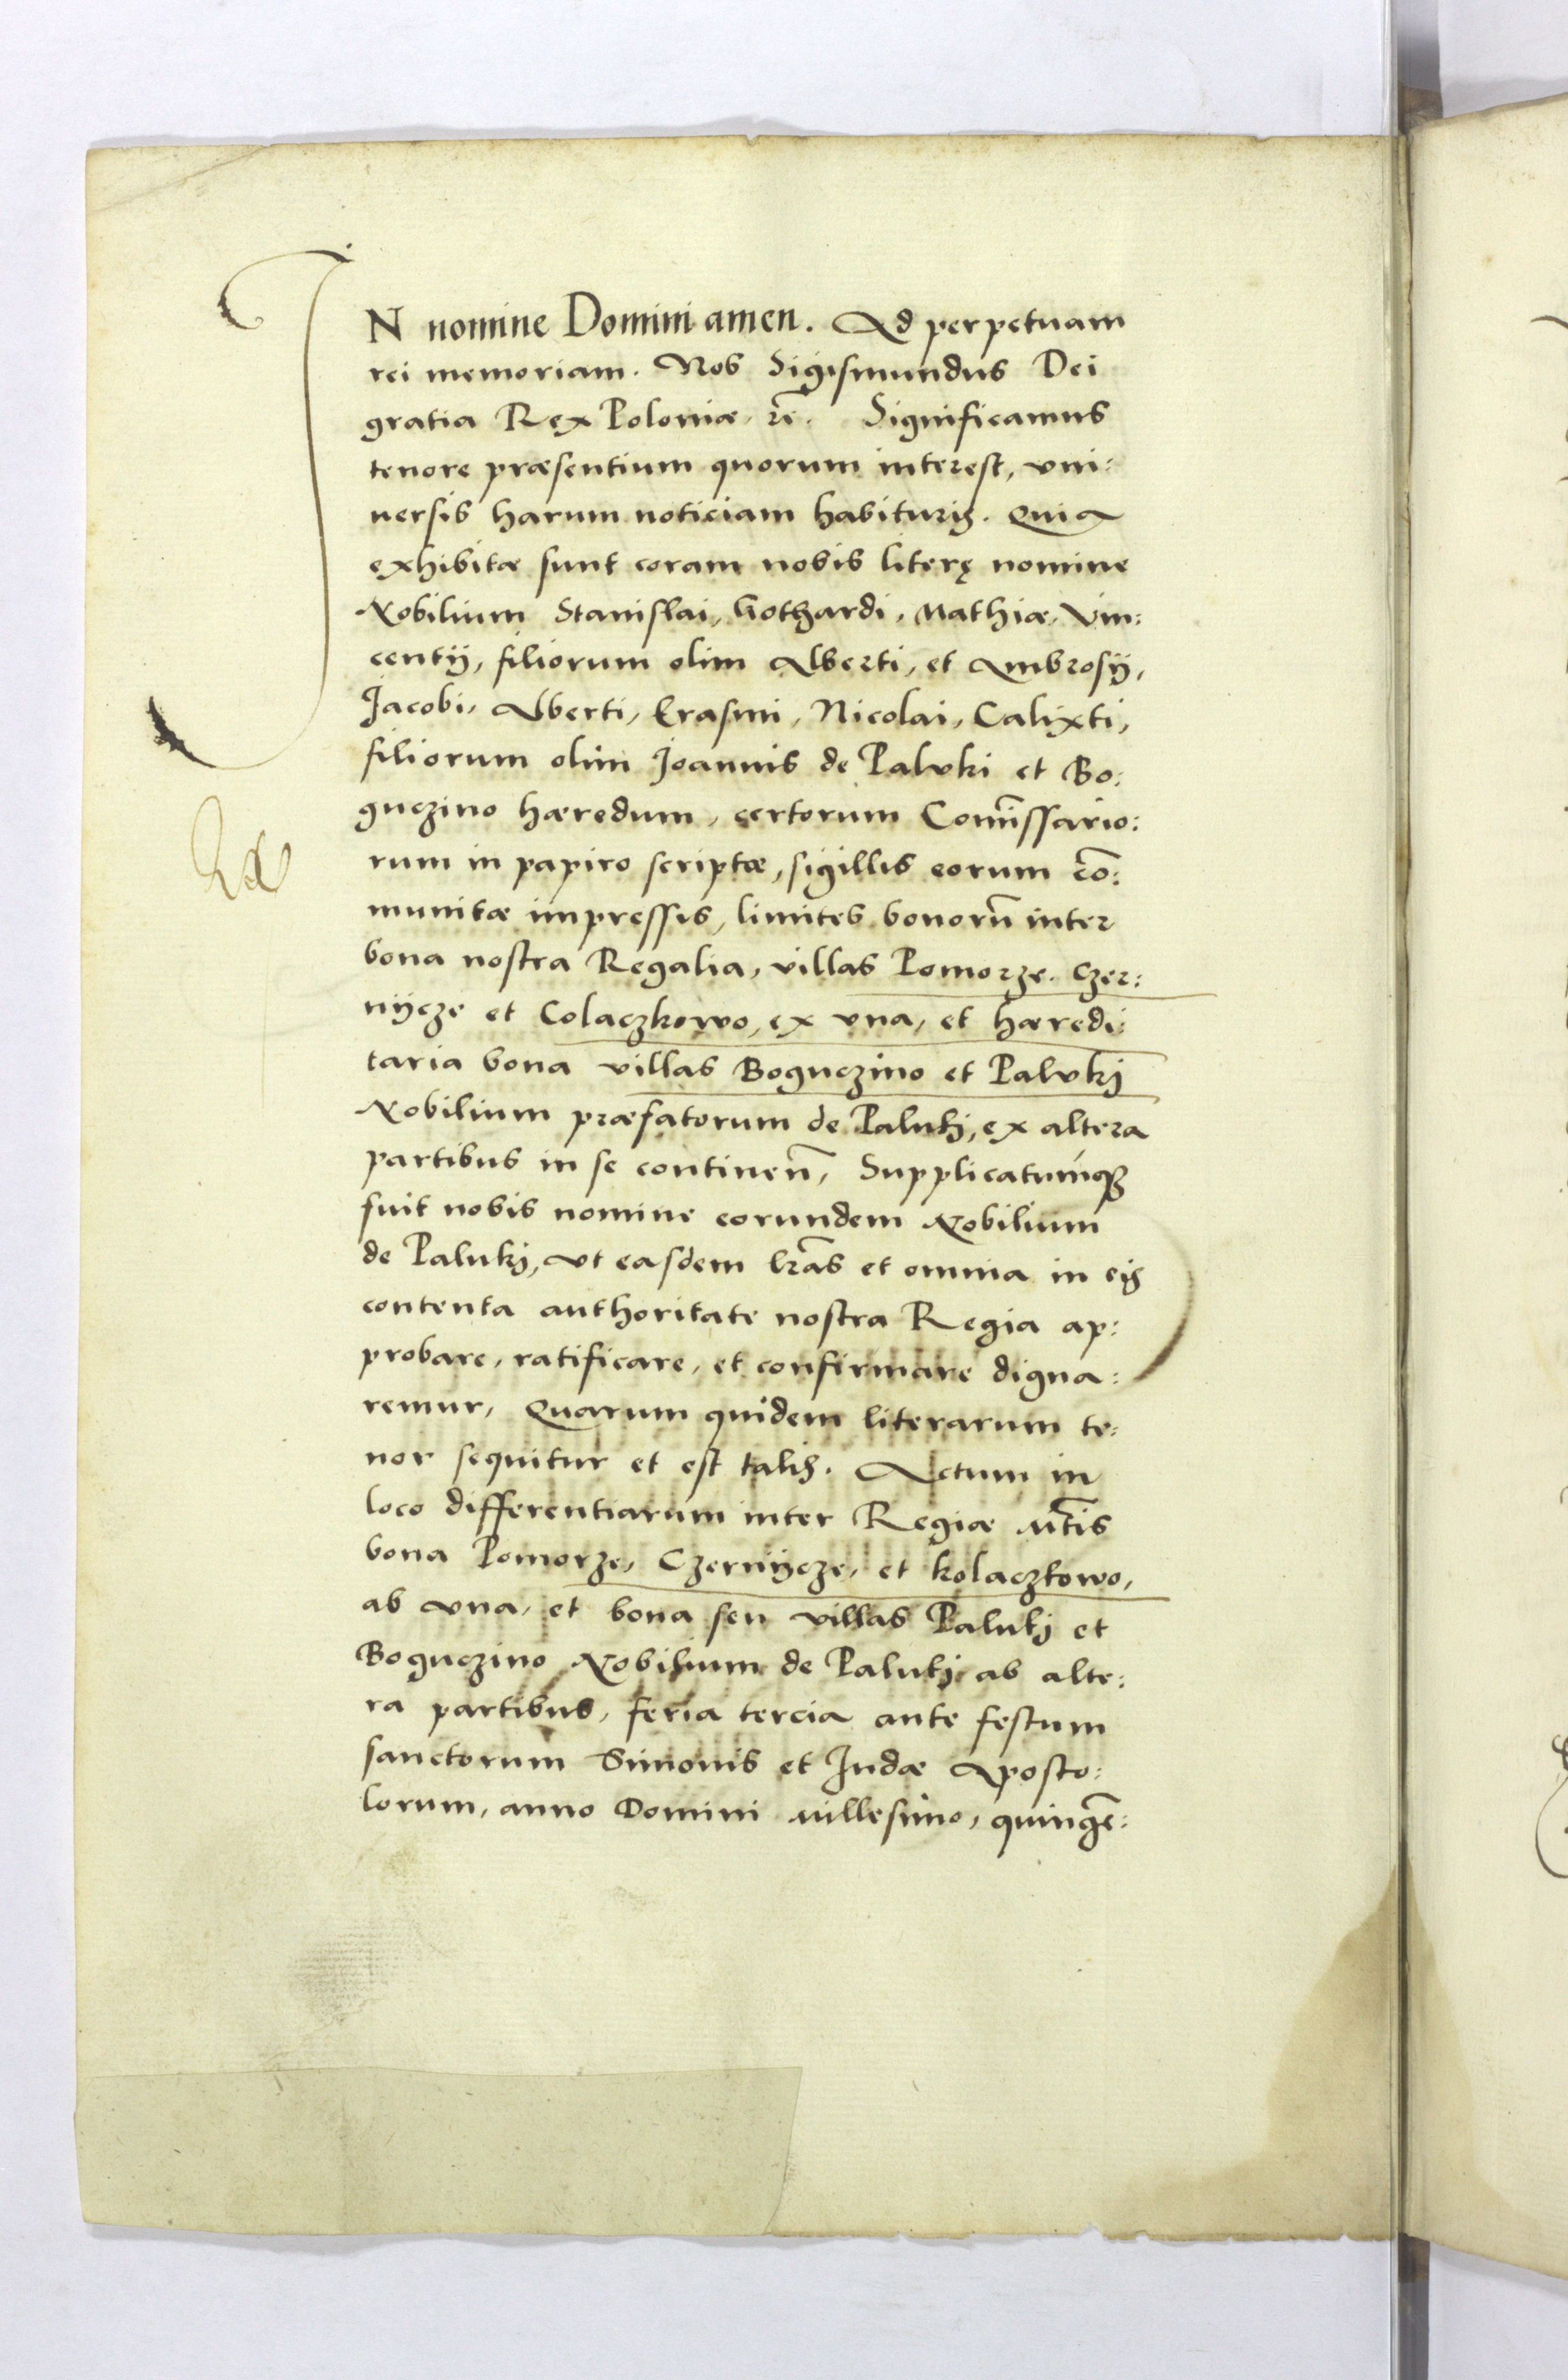 IN nomine Domini amen. Ad perpetuam
rei memoriam. Nos Sigismundus Dei
gratia Rex Poloniæ, rc̃. Significamus
tenore præsentium quorum interest, vni:
uersis harum noticiam habituris. Quia
exhibitæ sunt coram nobis literę nomine
Nobilium Stanislai, Gothardi, Mathiæ, Vin:
centij, filiorum olim Alberti, et Ambrosij,
Jacobi, Alberti, Erasmi, Nicolai, Calixti,
filiorum olim Joannis de Palvki et Bo:
guczino hæredum, certorum Com̃issario:
rum in papiro scriptæ, sigillis eorum cõ:
munitæ impressis, limites bonorũ inter
bona nostra Regalia, villas Pomorze. Czer:
nijcze et Colaczkowo, ex vna, et hæredi:
taria bona villas Boguczino et Palvkj
Nobilium præfatorum de Palukj, ex altera
partibus in se continen̄, Supplicatumq3
fuit nobis nomine eorundem Nobilium
de Palukj, vt easdem lrãs et omnia in eis
contenta authoritate nostra Regia ap:
probare, ratificare, et confirmare digna:
remur, Quarum quidem literarum te:
nor sequitur et est talis. Actum in
loco differentiarum inter Regiæ Mtĩs
bona Pomorze, Czernijcze, et kolaczkowo,
ab vna, et bona seu villas Palukj et
Boguczino Nobilium de Palukj ab alte:
ra partibus, feria tercia ante festum
sanctorum Simonis et Judæ Aposto:
lorum, anno Domini millesimo, quingẽ: